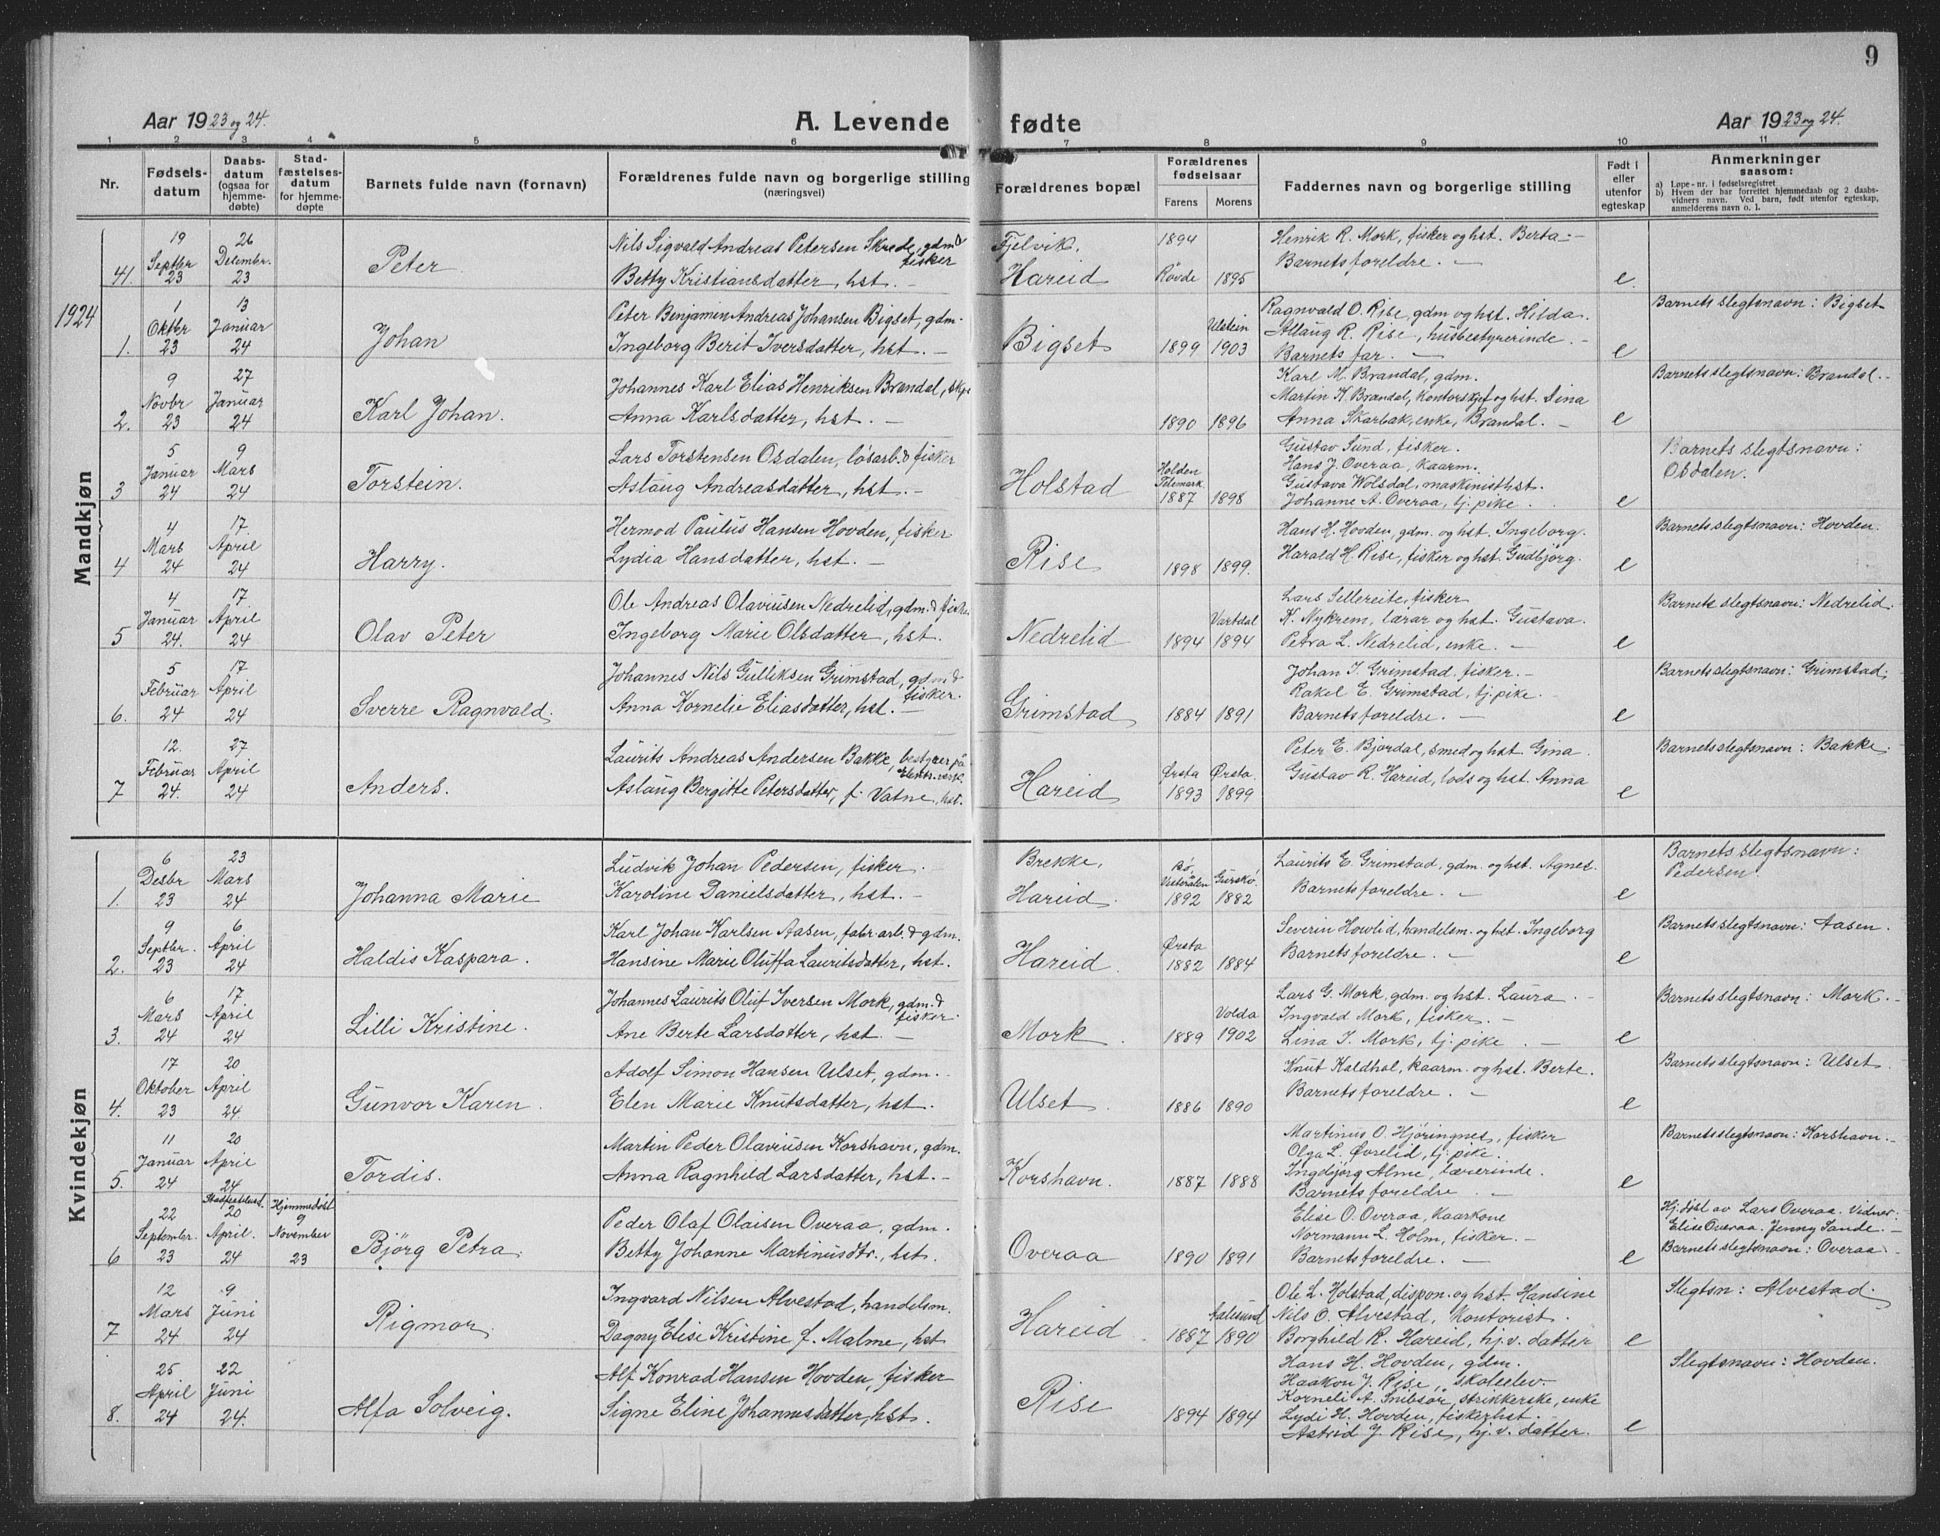 9
Aar 1923 og 24.
A. Levende fødte
Aar 1923 og 24.
1 2 3 4 5 6 7 8 9 10 11
Nr.
Fødsels-
datum
Daabs-
datum
(ogsaa for
hjemme-
døbte)
Stad-
fæstelses-
datum
for hjemme-
døpte
Barnets fulde navn (fornavn)
Forældrenes fulde navn og borgerlige stilling
(næringsvei)
Forældrenes bopæl
Forældrenes
fødselsaar
Farens Morens
Faddernes navn og borgerlige stilling
Født i
eller
utenfor
egteskap
Anmerkninger
saasom:
a) Løpe-nr. i fødselsregistret
b) Hvem der har forrettet hjemmedaab og 2 daabs-
vidners navn. Ved barn, født utenfor egteskap,
anmelderens navn o. l.
Mandkjøn
41. 19 Septbr 23 26 Desembr. 23 Peter
Nils Sigvald Andreas Petersen Skrede, gdm & fisker
Betty Kristiansdatter, hst. -
Fjelvik. Hareid 1894 Røvde 1895
Henrik R. Mork, fisker og hst. Berta -
Barnets foreldre. -
e
1924
1. 1 Oktbr 23 13 Januar 24 Johan
Peter Benjamin Andreas Johansen Bigset, gdm.
Ingeborg Berit Iversdatter, hst. -
Bigset 1899 Ulstein 1903
Ragnvald O. Rise, gdm og hst. Hilda.
Allaug R. Rise, husbestyrerinde. -
Barnets far. -
e
Barnets slegtsnavn: Bigset
2. 9 Novbr 23 27 Januar 24 Karl Johan.
Johannes Karl Elias Henriksen Brandal, skpr
Anna Karlsdatter, hst. -
1890 1896
Karl M. Brandal, gdm.
Martin K. Brandal, kontorskjef og hst. Sina
Anna Skarbak, enke, Brandal. -
e
Barnets slegtsnavn: Brandal. -
3 5 Januar 24 9 Mars 24 Torstein.
Lars Torstensen Osdalen, løsarb. & fisker
Aslaug Andreasdatter, hst. -
Holstad Holden Telemark 1887 1898
Gustav Sund, fisker.
Hans J. Overaa, kaarm.
Gustava Wolsdal, maskinisthst.
Johanne A. Overaa, tj. pike. -
e
Barnets slegtsnavn:
Osdalen.
4 4 Mars 24 17. April 24 Harry.
Hermod Paulus Hansen Hovden, fisker
Lydia Hansdatter, hst. -
Rise 1898 1899.
Hans H. Hovden, gdm. og hst. Ingeborg.
Harald H. Rise, fisker og hst. Gudbjörg.
e
Barnets slegtsnavn: Hovden.
5 4 Januar 24. 17 April 24 Olav Peter
Ole Andreas Olaviusen Nedrelid, gdm. & fisker
Ingeborg Marie Olsdatter, hst.
Nedrelid 1894 Vartdal 1894
Lars Sellereite, fisker
K. Nykrem, lærar og hst. Gustava.
Petra L. Nedrelid, enke. -
e
Barnets slegtsnavn: Nedrelid.
6. 5 Februar 24 17 April 24 Sverre Ragnvald.
Johannes Nils Gulliksen Grimstad, gdm & fisker.
Anna Kornelie Eliasdatter, hst. -
Grimstad 1884 1891
Johan I. Grimstad, fisker. -
Rakel E. Grimstad, tj. pike. -
Barnets foreldre. -
e
Barnets slegtsnavn: Grimstad.
7 12. Februar 24. 27 April 24 Anders.
Laurits Andreas Andersen Bakke, bestyrer på Elektr. verk
Aslaug Bergitte Petersdatter, f. Vatne, hst.
Hareid Ørsta 1893 Ørsta 1899
Peter E. Bjordal, smed og hst. Gina.
Gustav R. Hareid, lods og hst. Anna
e
Barnets slegtsnavn: Bakke.
Kvindekjøn
1. 6 Desbr 23 23 Mars 24 Johanna Marie
Ludvik Johan Pedersen, fisker. -
Karoline Danielsdatter, hst. -
Brekke, Hareid. Bø, Vesterålen 1892 Gurskø. 1882
Laurits E. Grimstad, gdm. og hst. Agnes.
Barnets foreldre. -
e
Barnets slegtsnavn:
Pedersen
2. 9 Septbr. 23 6 April 24 Haldis Kaspara.
Karl Johan Karlsen Aasen, fabr. arb. & gdm.
Hansine Marie Oluffa Lauritsdatter, hst.
Hareid. Ørsta 1882 1884
Severin Howlid, handelsm. og hst. Ingeborg
Barnets foreldre. -
e
Barnets slegtsnavn: Aasen.
3. 6 Mars 24 17 April 24 Lilli Kristine.
Johannes Laurits Oluf Iversen Mork, gdm. & fisker.
Ane Berte Larsdatter, hst. -
Mork. 1889 Volda 1902
Lars G. Mork, gdm. og hst. Laura. -
Ingvald Mork, fisker. -
Lina I. Mork, tj. pike. -
e
Barnets slegtsnavn: Mork. -
4. 17 Oktober 23 20 April 24 Gunvor Karen.
Adolf Simon Hansen Ulset, gdm. -
Elen Marie Knutsdatter, hst.
Ulset. 1886 1890
Knut Kaldhol, kaarm. og hst. Berte.
Barnets foreldre. -
e
Barnets slegtsnavn: Ulset.
5. 11 Januar 24 20 April 24 Tordis.
Martin Peder Olaviusen Korshavn, gdm.
Anna Ragnhild Larsdatter, hst. -
Korshavn. 1887 1888
Martinus O. Hjöringnes, fisker
Olga L. Øvrelid, tj. pike.
Ingebjörg Alme, lærerinde.
Barnets foreldre. -
e
Barnets slegtsnavn: Korshavn. -
6 22 Septembr. 23 20 April. 24 Hjemmedöbt 9 November 23 Björg Petra.
Peder Olaf Olaisen Overaa, gdm.
Betty Johanne Martinusdtr., hst.
Overaa 1890 1891
Elise O. Overaa, kaarkone
Normann L. Holm, fisker. -
Barnets foreldre. -
e
Hj. döbt av Lars Overaa. Vidner:
Elise Overaa. Jenny Sande. -
Barnets slegtsnavn: Overaa
7 12 Mars 24 9 Juni 24 Rigmor.
Ingvard Nilsen Alvestad, handelsm.
Dagny Elise Kristine f. Malme, hst
Hareid. 1887 Aalesund 1890
Ole L. Holstad, dispon. og hst. Hansine
Nils O. Alvestad, kontorist.
Borghild R. Hareid, hj. v. datter
e
Slegtsn: Alvestad.
8. 25 April 24 22 Juni 24. Alfa Solveig.
Alf Konrad Hansen Hovden, fisker
Signe Eline Johannesdatter, hst.
Rise 1894 1894
Hans H. Hovden, gdm.
Haakon J. Rise, skoleelev.
Korneli A. Snibsör, strikkerske, enke
Lydi H. Hovden, fiskerhst.
Astrid J. Rise, hj. v. datter.
e
Slegtsnavn: Hovden.